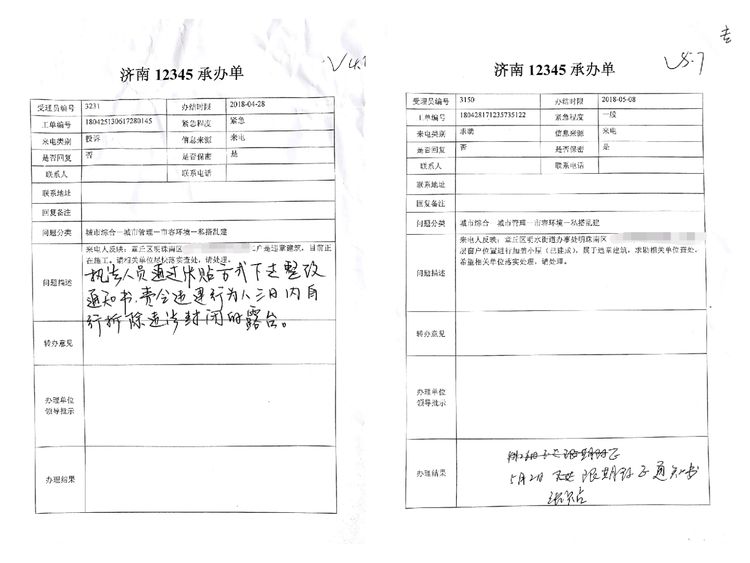 济南 12345 承办单
受理员编号 3231 办结时限 2018-04-28
工单编号 180425130617280145 紧急程度 紧急
来电类别 投诉 信息来源 来电
是否回复 否 是否保密 是
联系人 联系电话
联系地址
回复备注
问题分类 城市综合—城市管理—市容环境—私搭乱建
来电人反映:章丘区明珠南区
二户是违章建筑,目前正
在施工。请相关单位尽快落实查处,请处理。
问题描述
执法人员通过张贴方式下达整改
通知书,责令违建行为人三日内自
行拆除违法封闭的露台。
转办意见
办理单位
领导批示
办理结果
5.7
济南 12345 承办单
受理员编号 3150 办结时限 2018-05-08
工单编号 180428171235735122 紧急程度 一般
来电类别 求助 信息来源 来电
是否回复 否 是否保密 是
联系人 联系电话
联系地址
回复备注
问题分类 城市综合—城市管理—市容环境—私搭乱建
来电人反映:章丘区明水街道办事处明珠南区
层窗户位置进行加盖小屋(已建成),属于违章建筑,求助相关单位查处,
希望相关单位落实处理,请处理。
问题描述
转办意见
办理单位
领导批示
办理结果
5月2日 限期拆除通知书